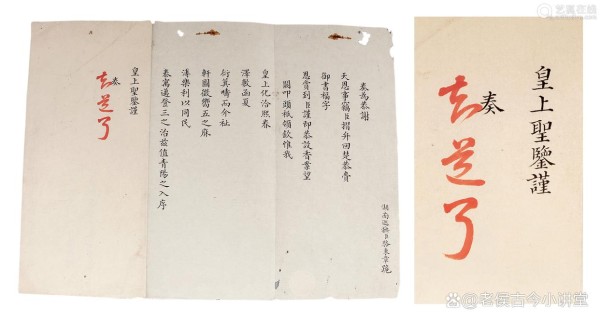 湖南巡撫臣駱秉章跪
奏為恭謝
天恩事竊臣摺弁回楚恭齎
御書福字
恩賞到臣謹即恭設香案望
闕叩頭祗領欽惟我
皇上化洽熙春
澤敷函夏
衍箕疇而介祉
軒圖徵嚮五之庥
溥樂利以同民
泰寓遍登三之治茲值青陽之入序
皇上聖鑒謹
奏
知道了
皇上聖鑒謹
奏
知道了
知乎 @老侯古今小讲堂